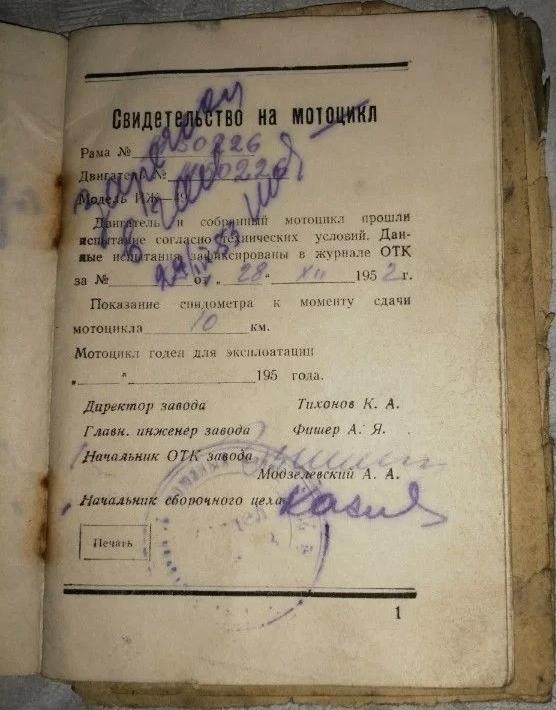 Свидетельство на мотоцикл
Рама №
Двигатель №
Модель ИЖ—49
Двигатель и собранный мотоцикл прошли
испытание согласно технических условий. Дан-
ные испытания зафиксированы в журнале ОТК
за № от „ 28 " XII 1952 г.
Показание спидометра к моменту сдачи
мотоцикла 10 км.
Мотоцикл годен для эксплоатации
„ " 195 года.
Директор завода Тихонов К. А.
Главн. инженер завода Фишер А. Я.
Начальник ОТК завода
Модзелевский А. А.
Начальник сборочного цеха
Печать
1